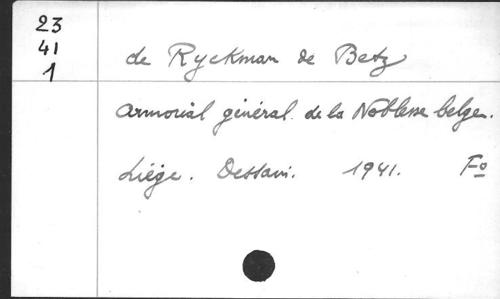 23
41
1
de Ryckman de Betz
Armorial général de la Noblesse belge.
Liège. Dessain. 1941. Fo